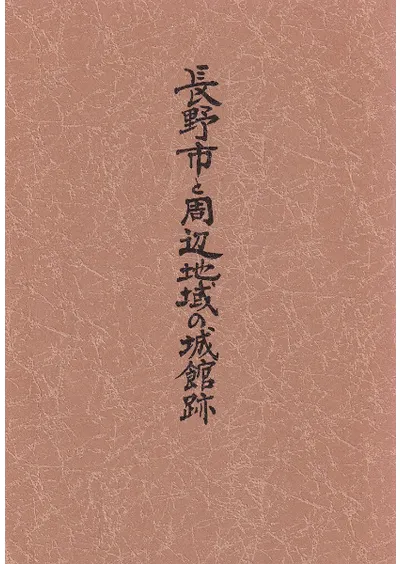 長野市と周辺地域の城館跡